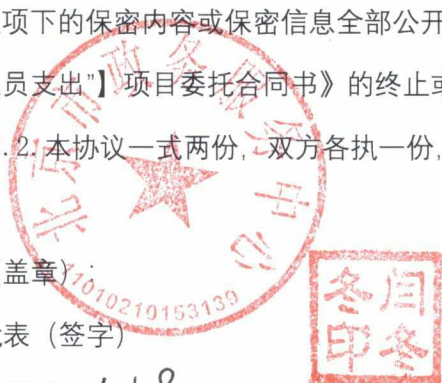 项下的保密内容或保密信息全部公开
员支出”】项目委托合同书》的终止或
.2. 本协议一式两份，双方各执一份，
北京市政务服务中心
盖章）：
11010210153139
表（签字）